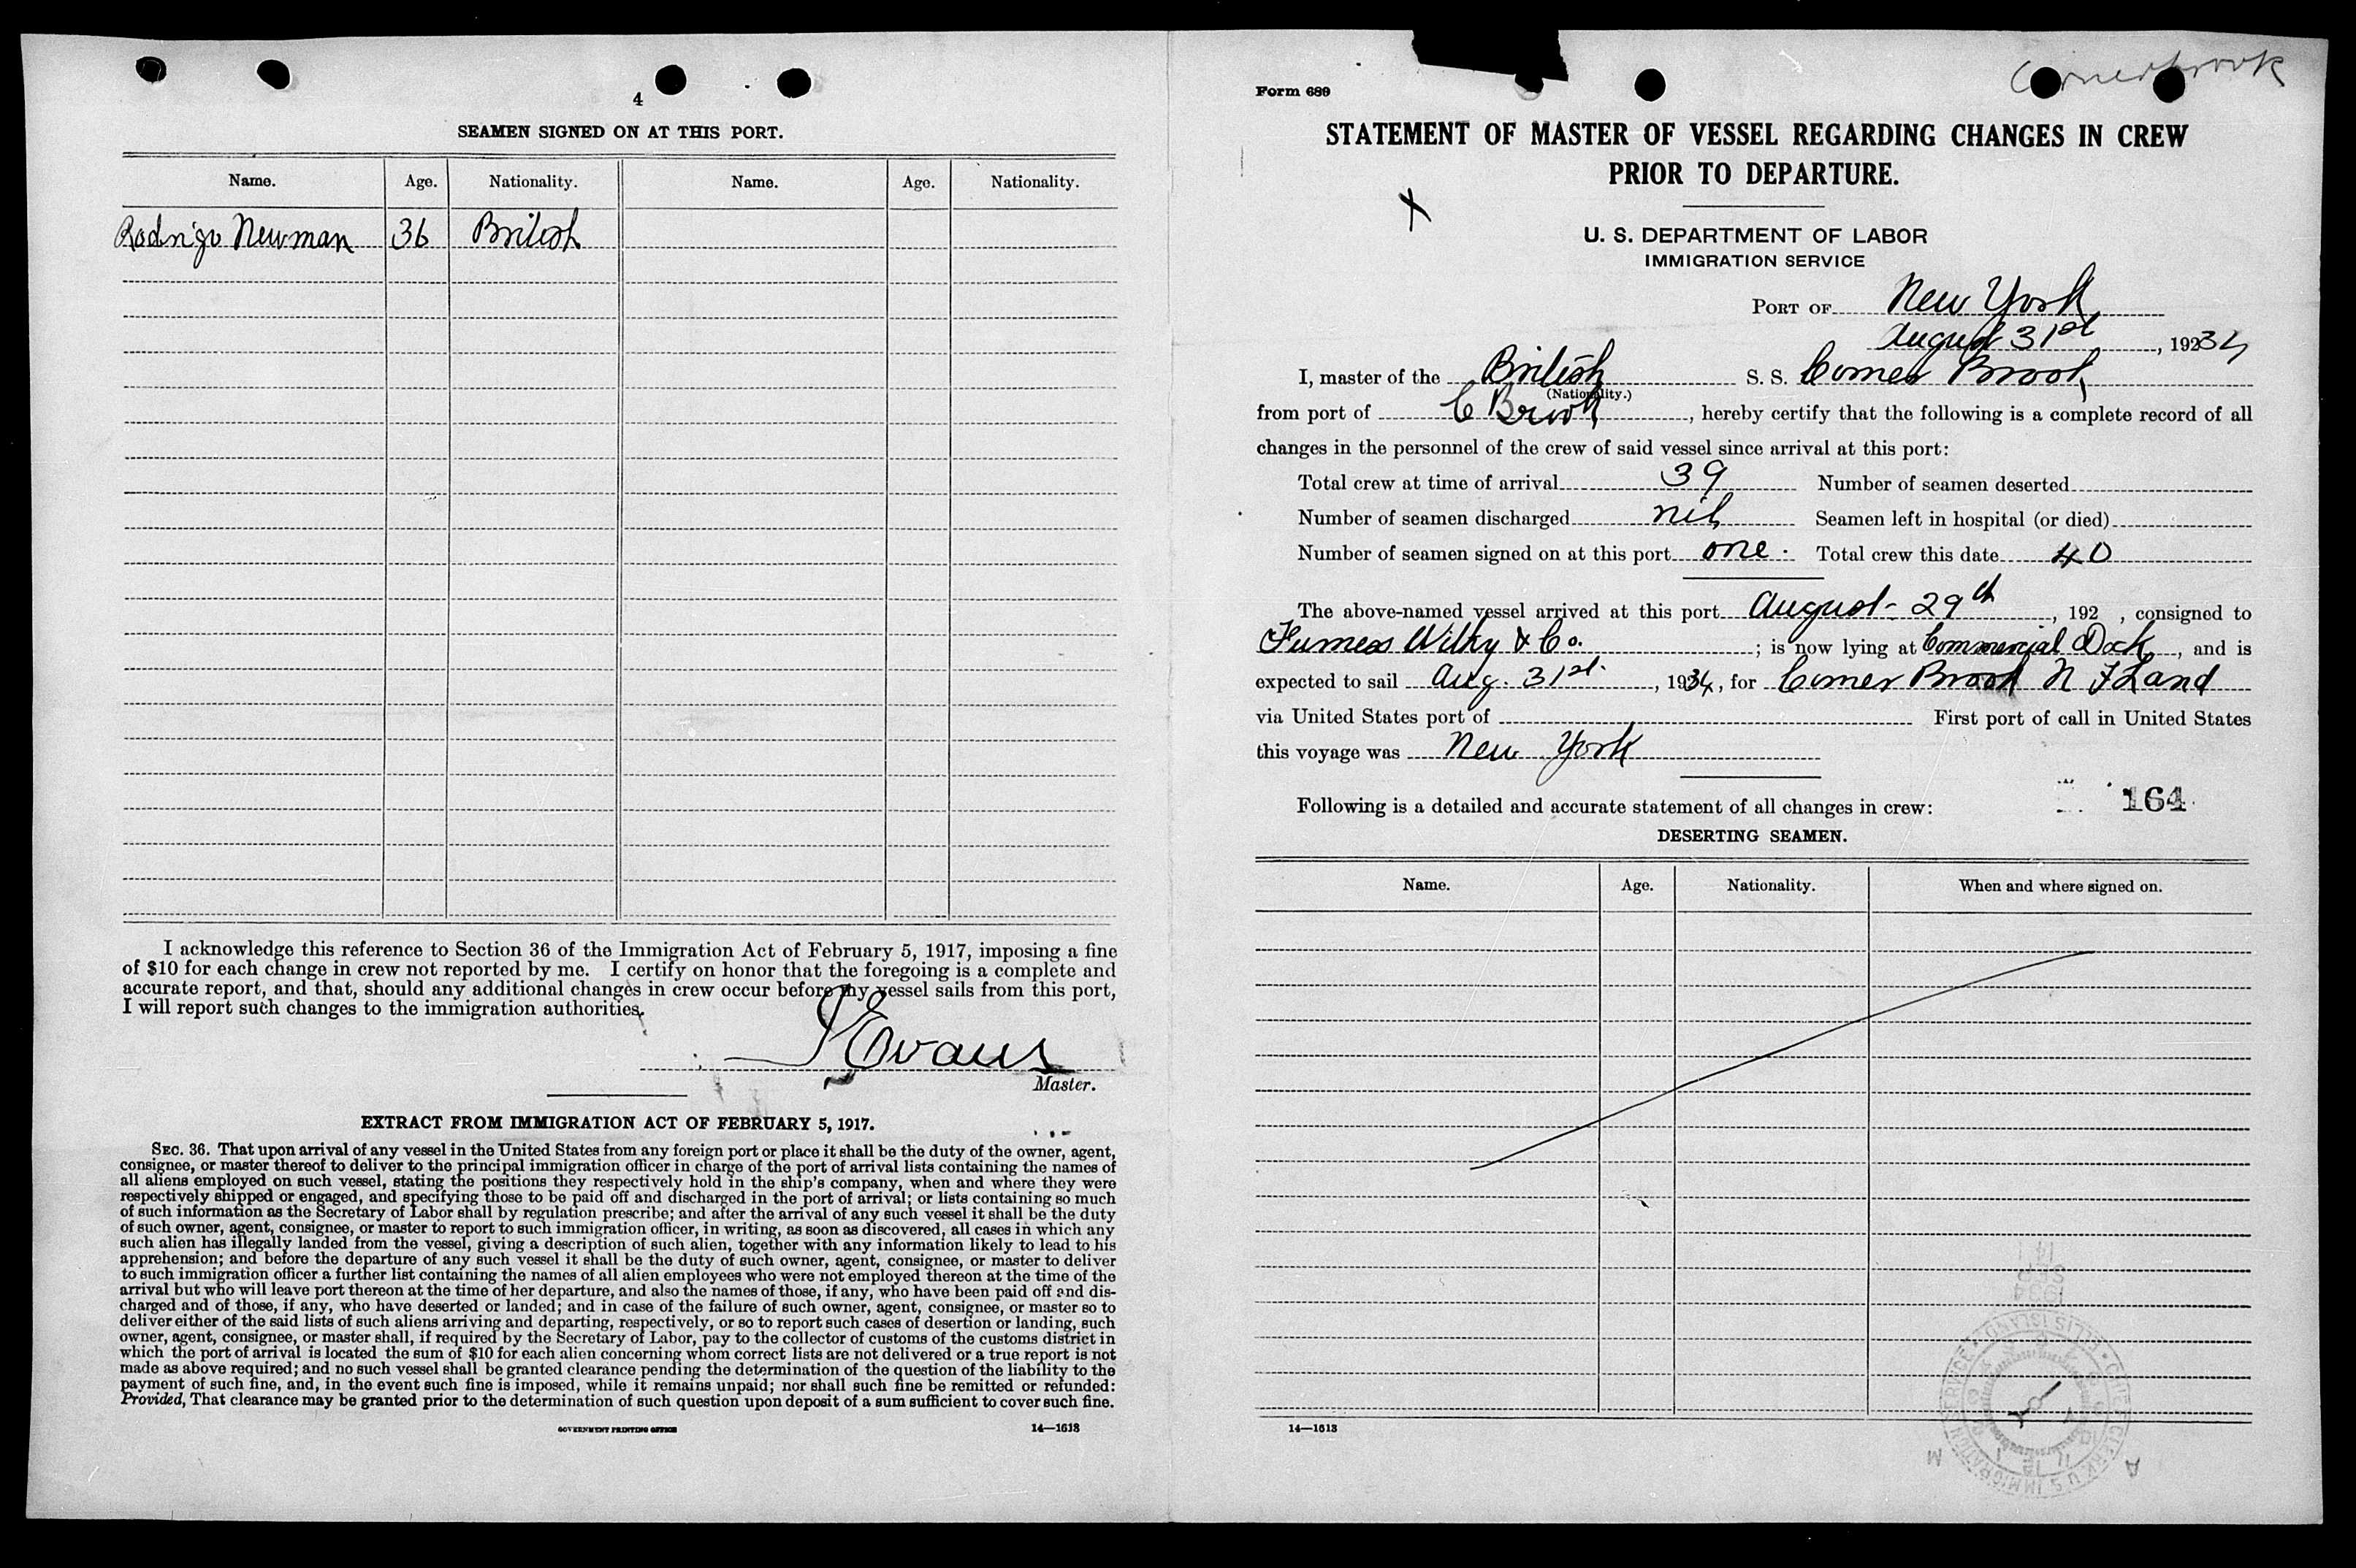 4
SEAMEN SIGNED ON AT THIS PORT.
Name. Age. Nationality. Name. Age. Nationality.
Rodrigo Newman 36 British
I acknowledge this reference to Section 36 of the Immigration Act of February 5, 1917, imposing a fine
of $10 for each change in crew not reported by me. I certify on honor that the foregoing is a complete and
accurate report, and that, should any additional changes in crew occur before my vessel sails from this port,
I will report such changes to the immigration authorities.
Evans
Master.
EXTRACT FROM IMMIGRATION ACT OF FEBRUARY 5, 1917.
SEC. 36. That upon arrival of any vessel in the United States from any foreign port or place it shall be the duty of the owner, agent,
consignee, or master thereof to deliver to the principal immigration officer in charge of the port of arrival lists containing the names of
all aliens employed on such vessel, stating the positions they respectively hold in the ship's company, when and where they were
respectively shipped or engaged, and specifying those to be paid off and discharged in the port of arrival; or lists containing so much
of such information as the Secretary of Labor shall by regulation prescribe; and after the arrival of any such vessel it shall be the duty
of such owner, agent, consignee, or master to report to such immigration officer, in writing, as soon as discovered, all cases in which any
such alien has illegally landed from the vessel, giving a description of such alien, together with any information likely to lead to his
apprehension; and before the departure of any such vessel it shall be the duty of such owner, agent, consignee, or master to deliver
to such immigration officer a further list containing the names of all alien employees who were not employed thereon at the time of the
arrival but who will leave port thereon at the time of her departure, and also the names of those, if any, who have been paid off and dis-
charged and of those, if any, who have deserted or landed; and in case of the failure of such owner, agent, consignee, or master so to
deliver either of the said lists of such aliens arriving and departing, respectively, or so to report such cases of desertion or landing, such
owner, agent, consignee, or master shall, if required by the Secretary of Labor, pay to the collector of customs of the customs district in
which the port of arrival is located the sum of $10 for each alien concerning whom correct lists are not delivered or a true report is not
made as above required; and no such vessel shall be granted clearance pending the determination of the question of the liability to the
payment of such fine, and, in the event such fine is imposed, while it remains unpaid; nor shall such fine be remitted or refunded:
Provided, That clearance may be granted prior to the determination of such question upon deposit of a sum sufficient to cover such fine.
GOVERNMENT PRINTING OFFICE 14—1613
Cornerbrook
Form 689
STATEMENT OF MASTER OF VESSEL REGARDING CHANGES IN CREW
PRIOR TO DEPARTURE.
X
U. S. DEPARTMENT OF LABOR
IMMIGRATION SERVICE
PORT OF New York
August 31st, 19234
I, master of the British S. S. Corner Brook
(Nationality.)
from port of C Brook, hereby certify that the following is a complete record of all
changes in the personnel of the crew of said vessel since arrival at this port:
Total crew at time of arrival 39 Number of seamen deserted
Number of seamen discharged nil Seamen left in hospital (or died)
Number of seamen signed on at this port one. Total crew this date 40
The above-named vessel arrived at this port August 29th, 192 , consigned to
Furness Withy & Co. ; is now lying at Commercial Dock, and is
expected to sail Aug. 31st, 1934, for Corner Brook N F Land
via United States port of First port of call in United States
this voyage was New York
164
Following is a detailed and accurate statement of all changes in crew:
DESERTING SEAMEN.
Name. Age. Nationality. When and where signed on.
14
SEP
1934
CHIEF CLERK U.S. IMMIGRATION SERVICE • ELLIS ISLAND •
M A
14—1613